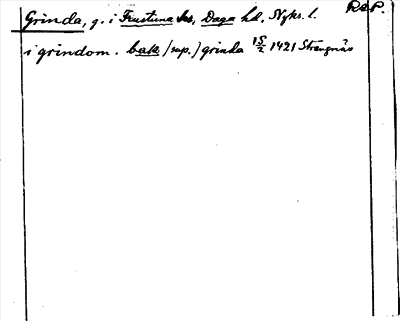 Grinda, g. i Frustuna sn, Daga hd, Nykr. l. RAP.
i grindom . bak (sup.) grinda 15/2 1421 Strengnäs